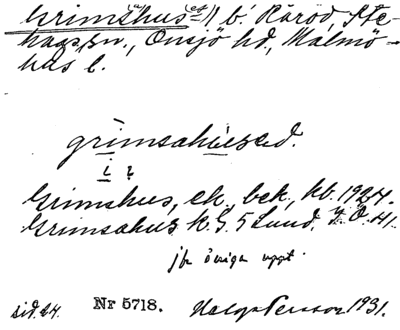 Grimshus(et) b. Röröd, Ste-
hags sn., Onsjö hd, Malmö-
hus l.
grimsahused.
Grimshus, ek., bek., kb. 1924.
Grimsahus k. G. 5 Lund. Z. Ö. 41.
jfr övriga uppt.
sid. 24. Nr 5718. Helge Persson 1931.